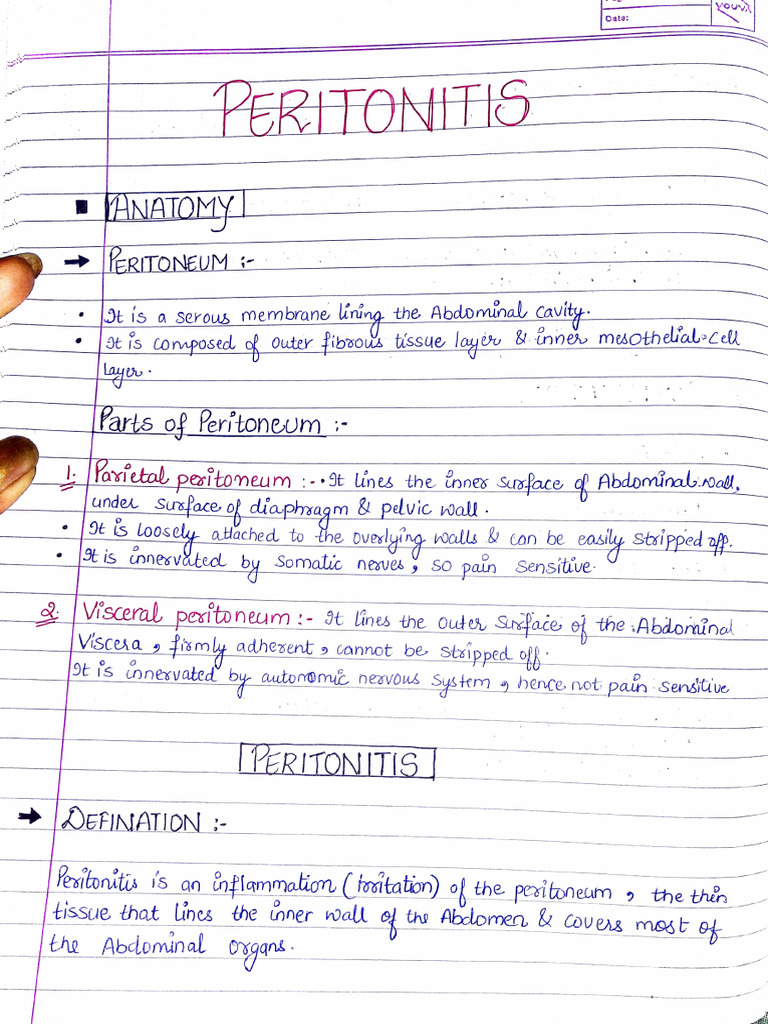 Date:
YOUVA
PERITONITIS
■ ANATOMY
→ PERITONEUM :-
• It is a serous membrane lining the Abdominal cavity.
• It is composed of outer fibrous tissue layer & inner mesothelial-cell
layer.
Parts of Peritoneum :-
1. Parietal peritoneum :- • It lines the inner surface of Abdominal wall,
under surface of diaphragm & pelvic wall.
• It is loosely attached to the overlying walls & can be easily stripped off.
• It is innervated by somatic nerves, so pain sensitive.
2. Visceral peritoneum :- It lines the outer surface of the Abdominal
Viscera, firmly adherent, cannot be stripped off.
It is innervated by autonomic nervous system, hence not pain sensitive
PERITONITIS
→ DEFINATION :-
Peritonitis is an inflammation (irritation) of the peritoneum, the thin
tissue that lines the inner wall of the Abdomen & covers most of
the Abdominal organs.